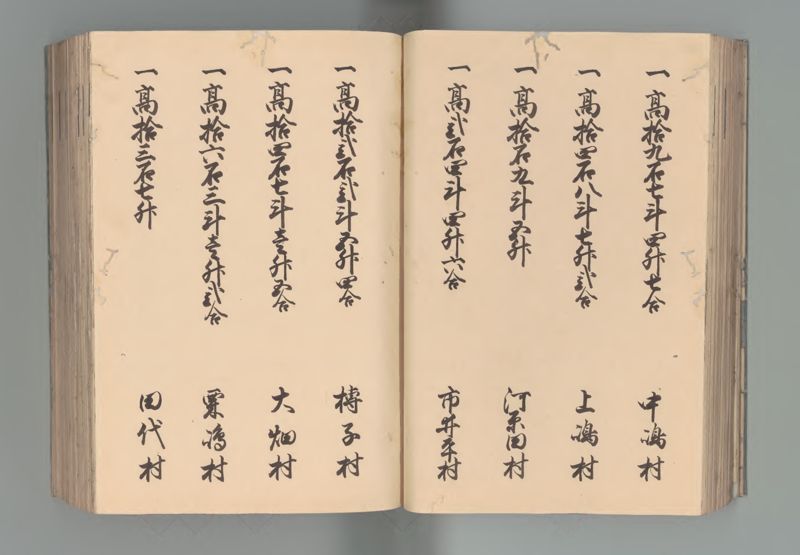 一高拾九石七斗四升七合 中嶋村
一高拾四石八斗七升弐合 上嶋村
一高拾石九斗五升 河原田村
一高弐石四斗四升六合 市井平村
一高拾弐石弐斗五升四合 樽子村
一高拾四石七斗壱升五合 大畑村
一高拾六石三斗壱升弐合 粟嶋村
一高拾三石七升 田代村